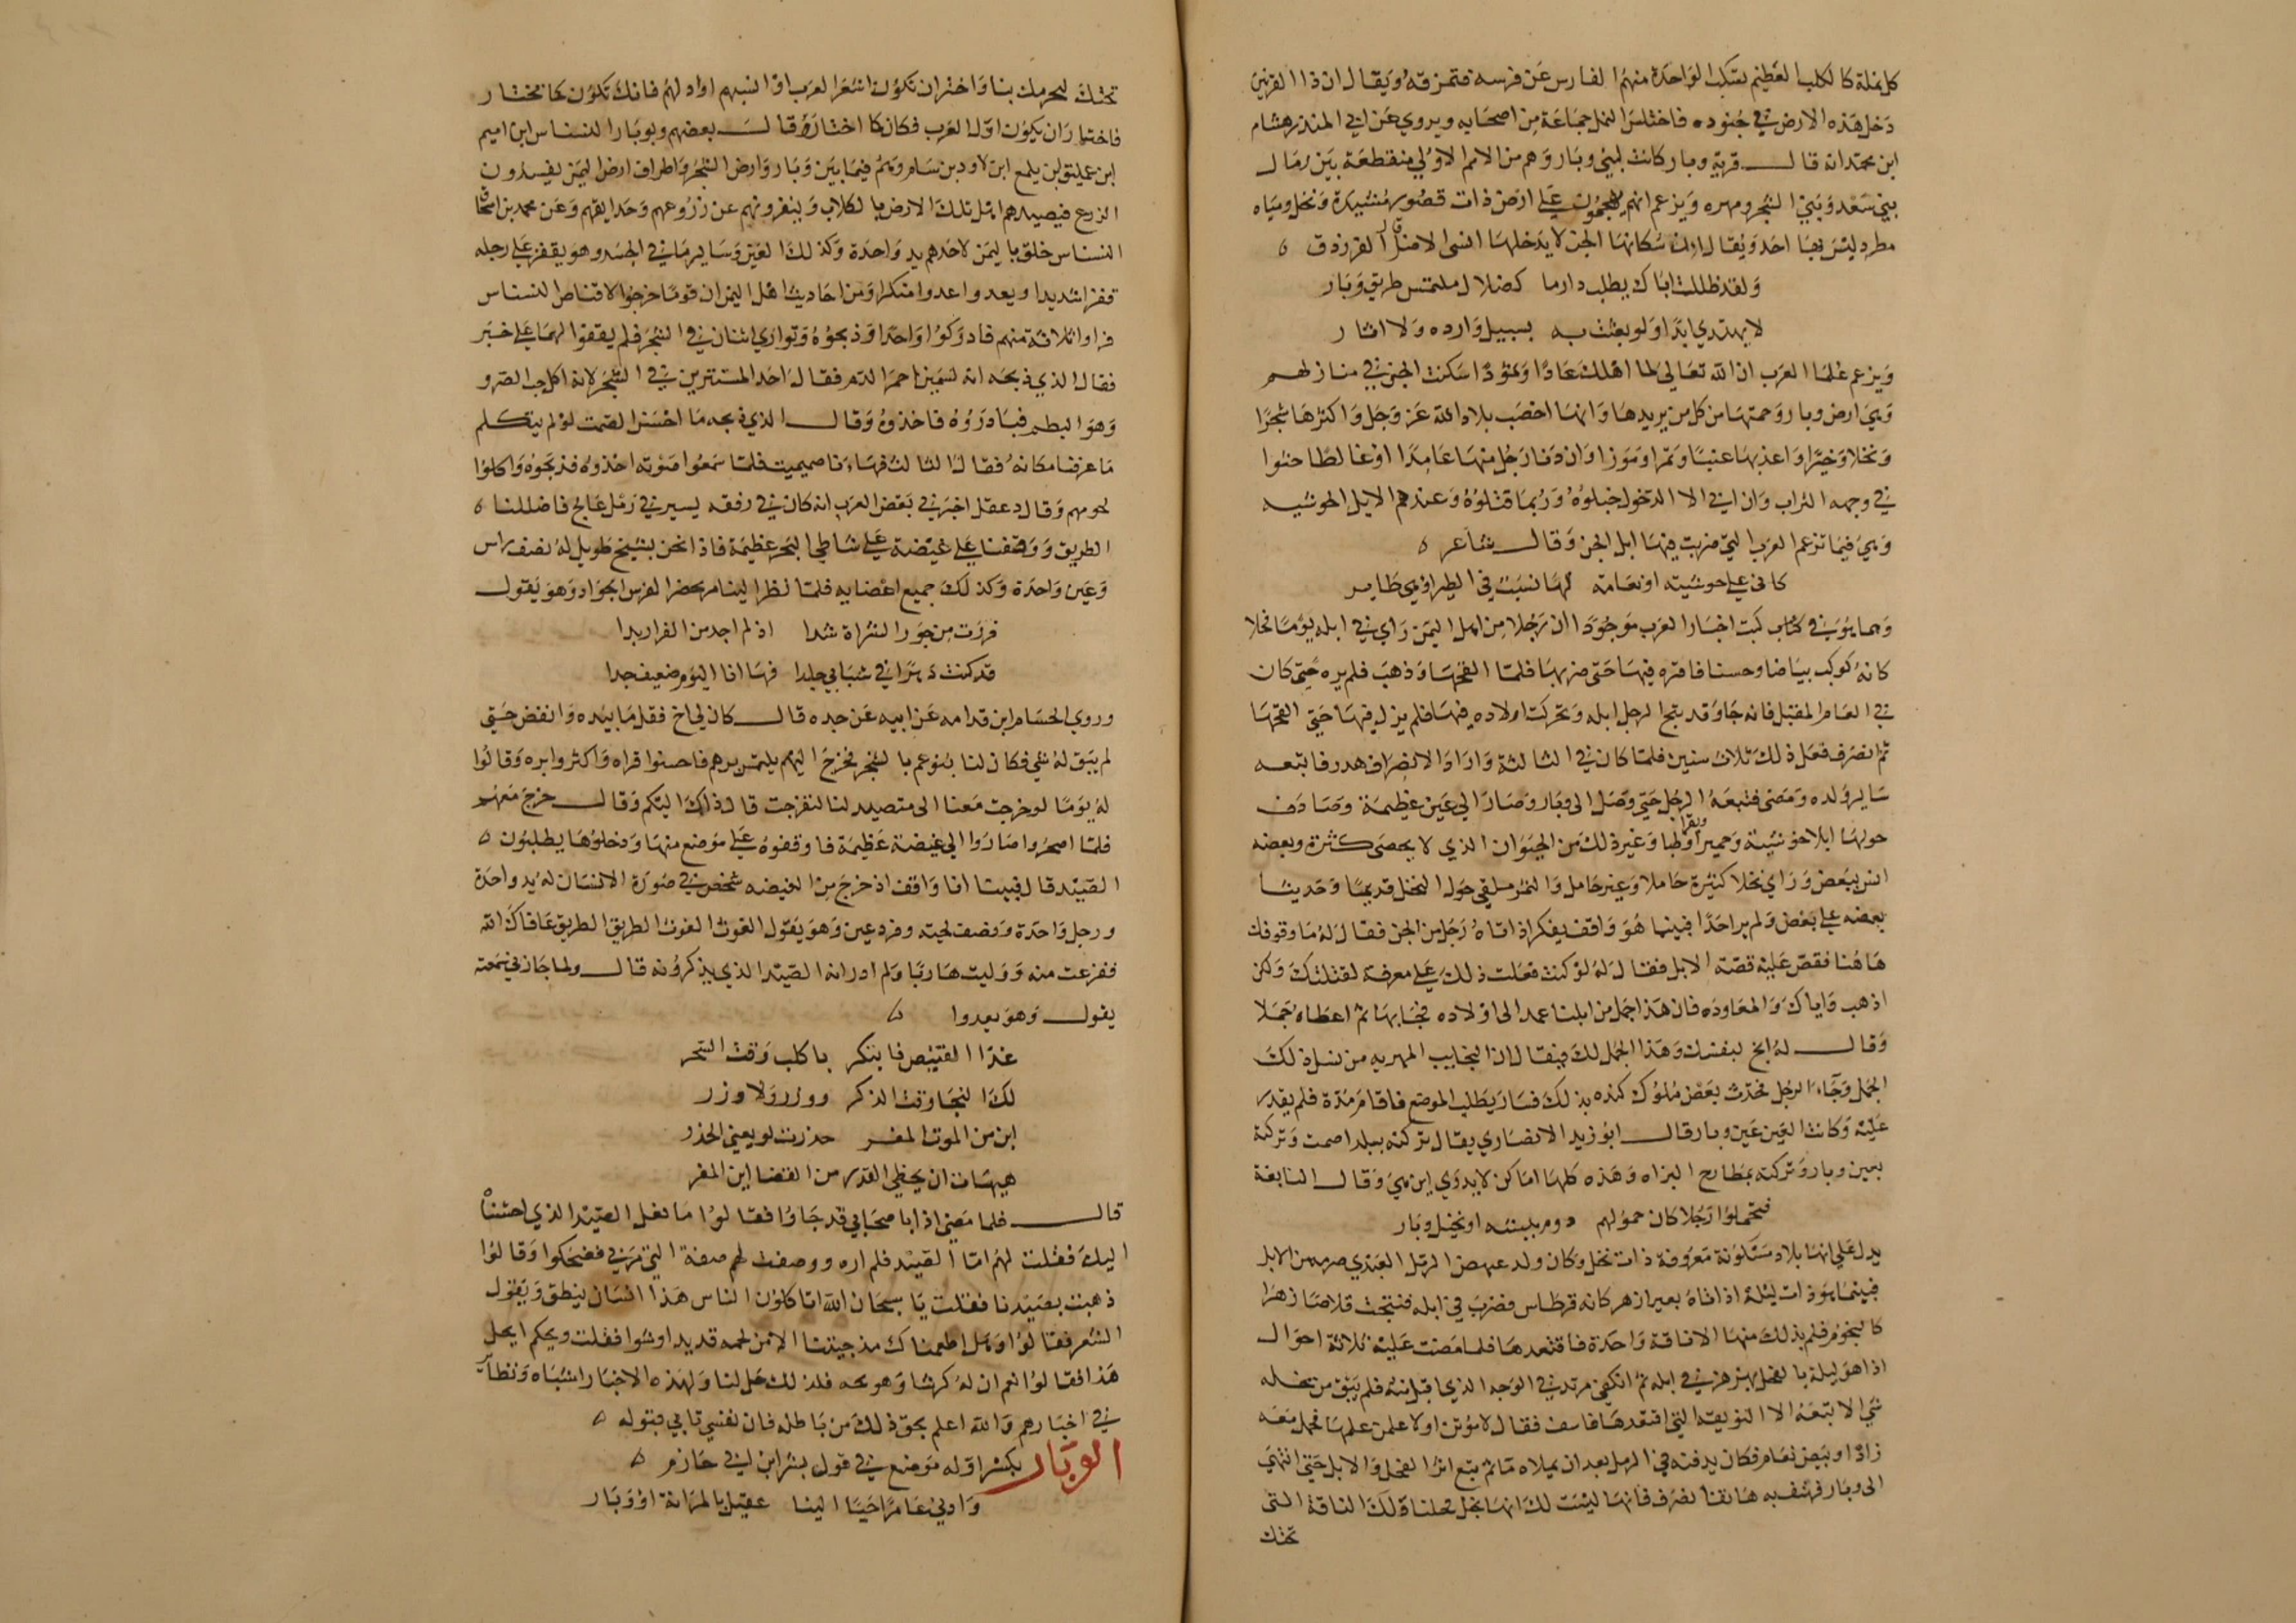 كل نملة كالكلب العظيم تستلب الواحدة منهم الفارس عن فرسه فتمزقه ويقال ان ذا القرنين
دخل هذه الارض في جنوده فاختلس النمل جماعة من اصحابه ويروي عن ابي المنذر هشام
ابن محمد انه قال قرية وبار كانت لبني وبار وهم من الامم الاولي منقطعة بين رمال
بني سعد وبين الشحر ومهره ويزعم انهم يهجمون علي ارض ذات قصور مشيدة ونخل ومياه
مطرد ليس بها احد ويقال ان سكانها الجن لا يدخلها انسي الا ضل قال الفرزدق
ولقد ظللت اباك يطلب دارما كضلال ملتمس طريق وبار
لا يهتدي ابدا ولو بعثت به بسبيل وارده ولا اثار
ويزعم علما العرب ان الله تعالي لما اهلك عادا وثمودا اسكنت الجن في منازلهم
وهي ارض وبار وحمتها من كل من يريدها وانها اخصب بلاد الله عز وجل واكثرها شجرا
ونخلا وخيرا واعذبها عنبا وتمرا وموزا وان دنا رجل منها عامدا او غالطا حثوا
في وجهه التراب وان ابي الا الدخول خبلوه وربما قتلوه وعندهم الابل الحوشيه
وهي فيما تزعم العرب التي ضربت فيها ابل الجن وقال شاعر
كاني علي حوشية او نعامة لها نسبت في الطير او هي طاير
وهما يؤس في كتاب كتب اخبار العرب موجودا ان رجلا من اهل اليمن راي في ابله يوما فحلا
كانه كوكب بياضا وحسنا فاقره فيها حتي ضربها فلما القحها وذهب فلم يره حتي كان
في العام المقبل فانه جا وقد نتج الرجل ابله وتحركت اولاده فيها فلم يزل فيها حتي القحها
ثم انصرف فعل ذلك ثلاث سنين فلما كان في الثالثة واراد الانصراف هدر فاتبعه
ساير ولده ومضي فتبعه الرجل حتي وصل الى وبار وصار الي عين عظيمة وصادف
حولها ابلا حوشية وحميرا وبقرا وظبا وغير ذلك من الحيوان الذي لا يحصى كثرة وبعضه
انس ببعض وراي نخلا كثيرة حاملا وغير حامل والتمر ملقي حول النخل قديما وحديثا
بعضه علي بعض ولم ير احدا فبينما هو واقف يفكر اذ اتاه رجل من الجن فقال له ما وقوفك
هاهنا فقص عليه قصة الابل فقال له لو كنت فعلت ذلك علي معرفة لقتلتك ولكن
اذهب واياك والمعاوده فان هذا جمل من ابلنا عمد الى اولاده فجا بها ثم اعطاه جملا
وقال له انج بنفسك وهذا الجمل لك فيقال ان النجايب المهريه من نسل ذلك
الجمل وجآء الرجل فحدث بعض ملوك كنده بذلك فسار يطلب الموضع فاقام مدة فلم يقدر
عليه وكانت العين عين وبار قال ابو زيد الانصاري يقال تركته ببلد اصمت وتركته
بعين وبار وتركته بمطارح البزاه وهذه كلها اماكن لا يدري اين هي وقال النابغة
فتحملوا رجلا كان حمولهم دوم ببيشه او نخيل وبار
يدل علي انها بلاد مسكونة معروفة ذات نخل وكان ولد عبهض الرمل العبدي صرمه من الابل
فبينما هو ذات ليلة اذ اتاه بعير ازهر كانه قرطاس فضرب في ابله فنتجت قلاصا زهرا
كالنجوم فلم يذلك منها الا ناقة واحدة فاقتعدها فلما مضت عليه ثلاثة احوال
اذا هو ليلة بالفحل يهزهز في ابله ثم انكفي مرتد في الوجه الذي اقبل منه فلم يبق من نجله
شي الا تبعه الا النويقة التي اقتعدها فاسف فقال لاموتن او لاعلمن علمها فحمل معه
زادا وبيض نعام فكان يدفنه في الرمل بعد ان يملاه مآ ثم تبع اثر الفحل والابل حتي انتهي
الى وبار فهتف به هاتف انصرف فانها ليست لك انها نجل فحلنا ولك الناقة التي
تحتك
تحتك لتحرمك بنا واختر ان تكون اشعر العرب او انسبهم او ادلهم فانك تكون كما تختار
فاختار ان يكون ادل العرب فكان كما اختار وقال بعضهم وبوبار النسناس ابن اميم
ابن عمليق بن يلمع ابن لاود بن سام وهم فيما بين وبار وارض الشحر واطراف ارض اليمن يفسدون
الزرع فيصيدهم اهل تلك الارض بالكلاب وينفرونهم عن زروعهم وحدايقهم وعن محمد بن اسحاق
النسناس خلق باليمن لاحدهم يد واحدة وكذلك العين وساير ما في الجسد وهو يقفز علي رجله
قفزا شديدا ويعدوا عدوا منكرا ومن احاديث اهل اليمن ان قوما خرجوا لاقتناص النسناس
فراوا ثلاثة منهم فادركوا واحدا وذبحوه وتواري اثنان في الشجر فلم يقفوا لهما علي خبر
فقال الذي ذبحه انه لسمين احمر الدم فقال احد المستترين في الشجر لانه اكل حب الضرو
وهو البطم فبادروه فاخذوه وقال الذي ذبحه ما احسن الصمت لو لم يتكلم
ما عرفنا مكانه فقال الثالث فها انا صميميت فلما سمعوا صوته اخذوه فذبحوه واكلوا
لحومهم وقال دعقل اخبرني بعض العرب انه كان في رفقه يسير في رمل عالج فاضللنا
الطريق ووقفنا علي غيضة علي شاطي البحر عظيمة فاذا نحن بشيخ طويل له نصف راس
وعين واحدة وكذلك جميع اعضايه فلما نظر الينا مر بحضر الفرس الجواد وهو يقول
فررت من جور الشراة شدا اذ لم اجد من الفرار بدا
قد كنت دهرا في شبابي جلدا فها انا اليوم ضعيف جدا
وروي الحسام ابن قدامه عن ابيه عن جده قال كان لي اخ فقل ما بيده وانفض حتي
لم يبق له شي فكان لنا بنوعم بالشحر فخرج اليهم يلتمس برهم فاحسنوا قراه واكثروا بره وقالوا
له يوما لو خرجت معنا الى متصيد لنا لتفرجت قال ذاك اليكم وقال خرج معهم
فلما اصحروا صاروا الي غيضة عظيمة فاوقفوه علي موضع منها ودخلوها يطلبون
الصيد قال فبينا انا واقف اذ خرج من الغيضه شخص في صورة الانسان له يد واحدة
ورجل واحدة ونصف لحيته وفرد عين وهو يقول الغوث الغوث الطريق الطريق عافاك الله
ففزعت منه ووليت هاربا ولم ادر انه الصيد الذي يذكرونه قال ولما جازني سمعته
يقول وهو يعدوا
غدا القنيص فابتكر باكلب وقت السحر
لك النجا وقت الذكر ووزر ولا وزر
اين من الموت المفر حذرت لو يغني الحذر
هيهات ان يخطي القدر من القضا اين المفر
قال فلما مضي اذا باصحابي قد جاوا فقالوا ما فعل الصيد الذي احتشناه
اليك فقلت لهم اما الصيد فلم اره ووصفت لهم صفة التي مر بي فضحكوا وقالوا
ذهبت بصيدنا فقلت يا سبحان الله اتاكلون الناس هذا انسان ينطق ويقول
الشعر فقالوا وهل اطعمناك مذ جيتنا الا من لحمه قديدا وشوا فقلت ويحكم ايحل
هذا فقالوا نعم ان له كرشا وهو يجتر فلذلك حل لنا ولهذه الاخبار اشباه ونظآير
في اخبارهم والله اعلم بحق ذلك من باطله فان نفسي تابي قبوله
الوبار بكسر اوله موضع في قول بشر ابن ابي حازم
وادني عامر احيا الينا عقيل بالمرانة او وبار